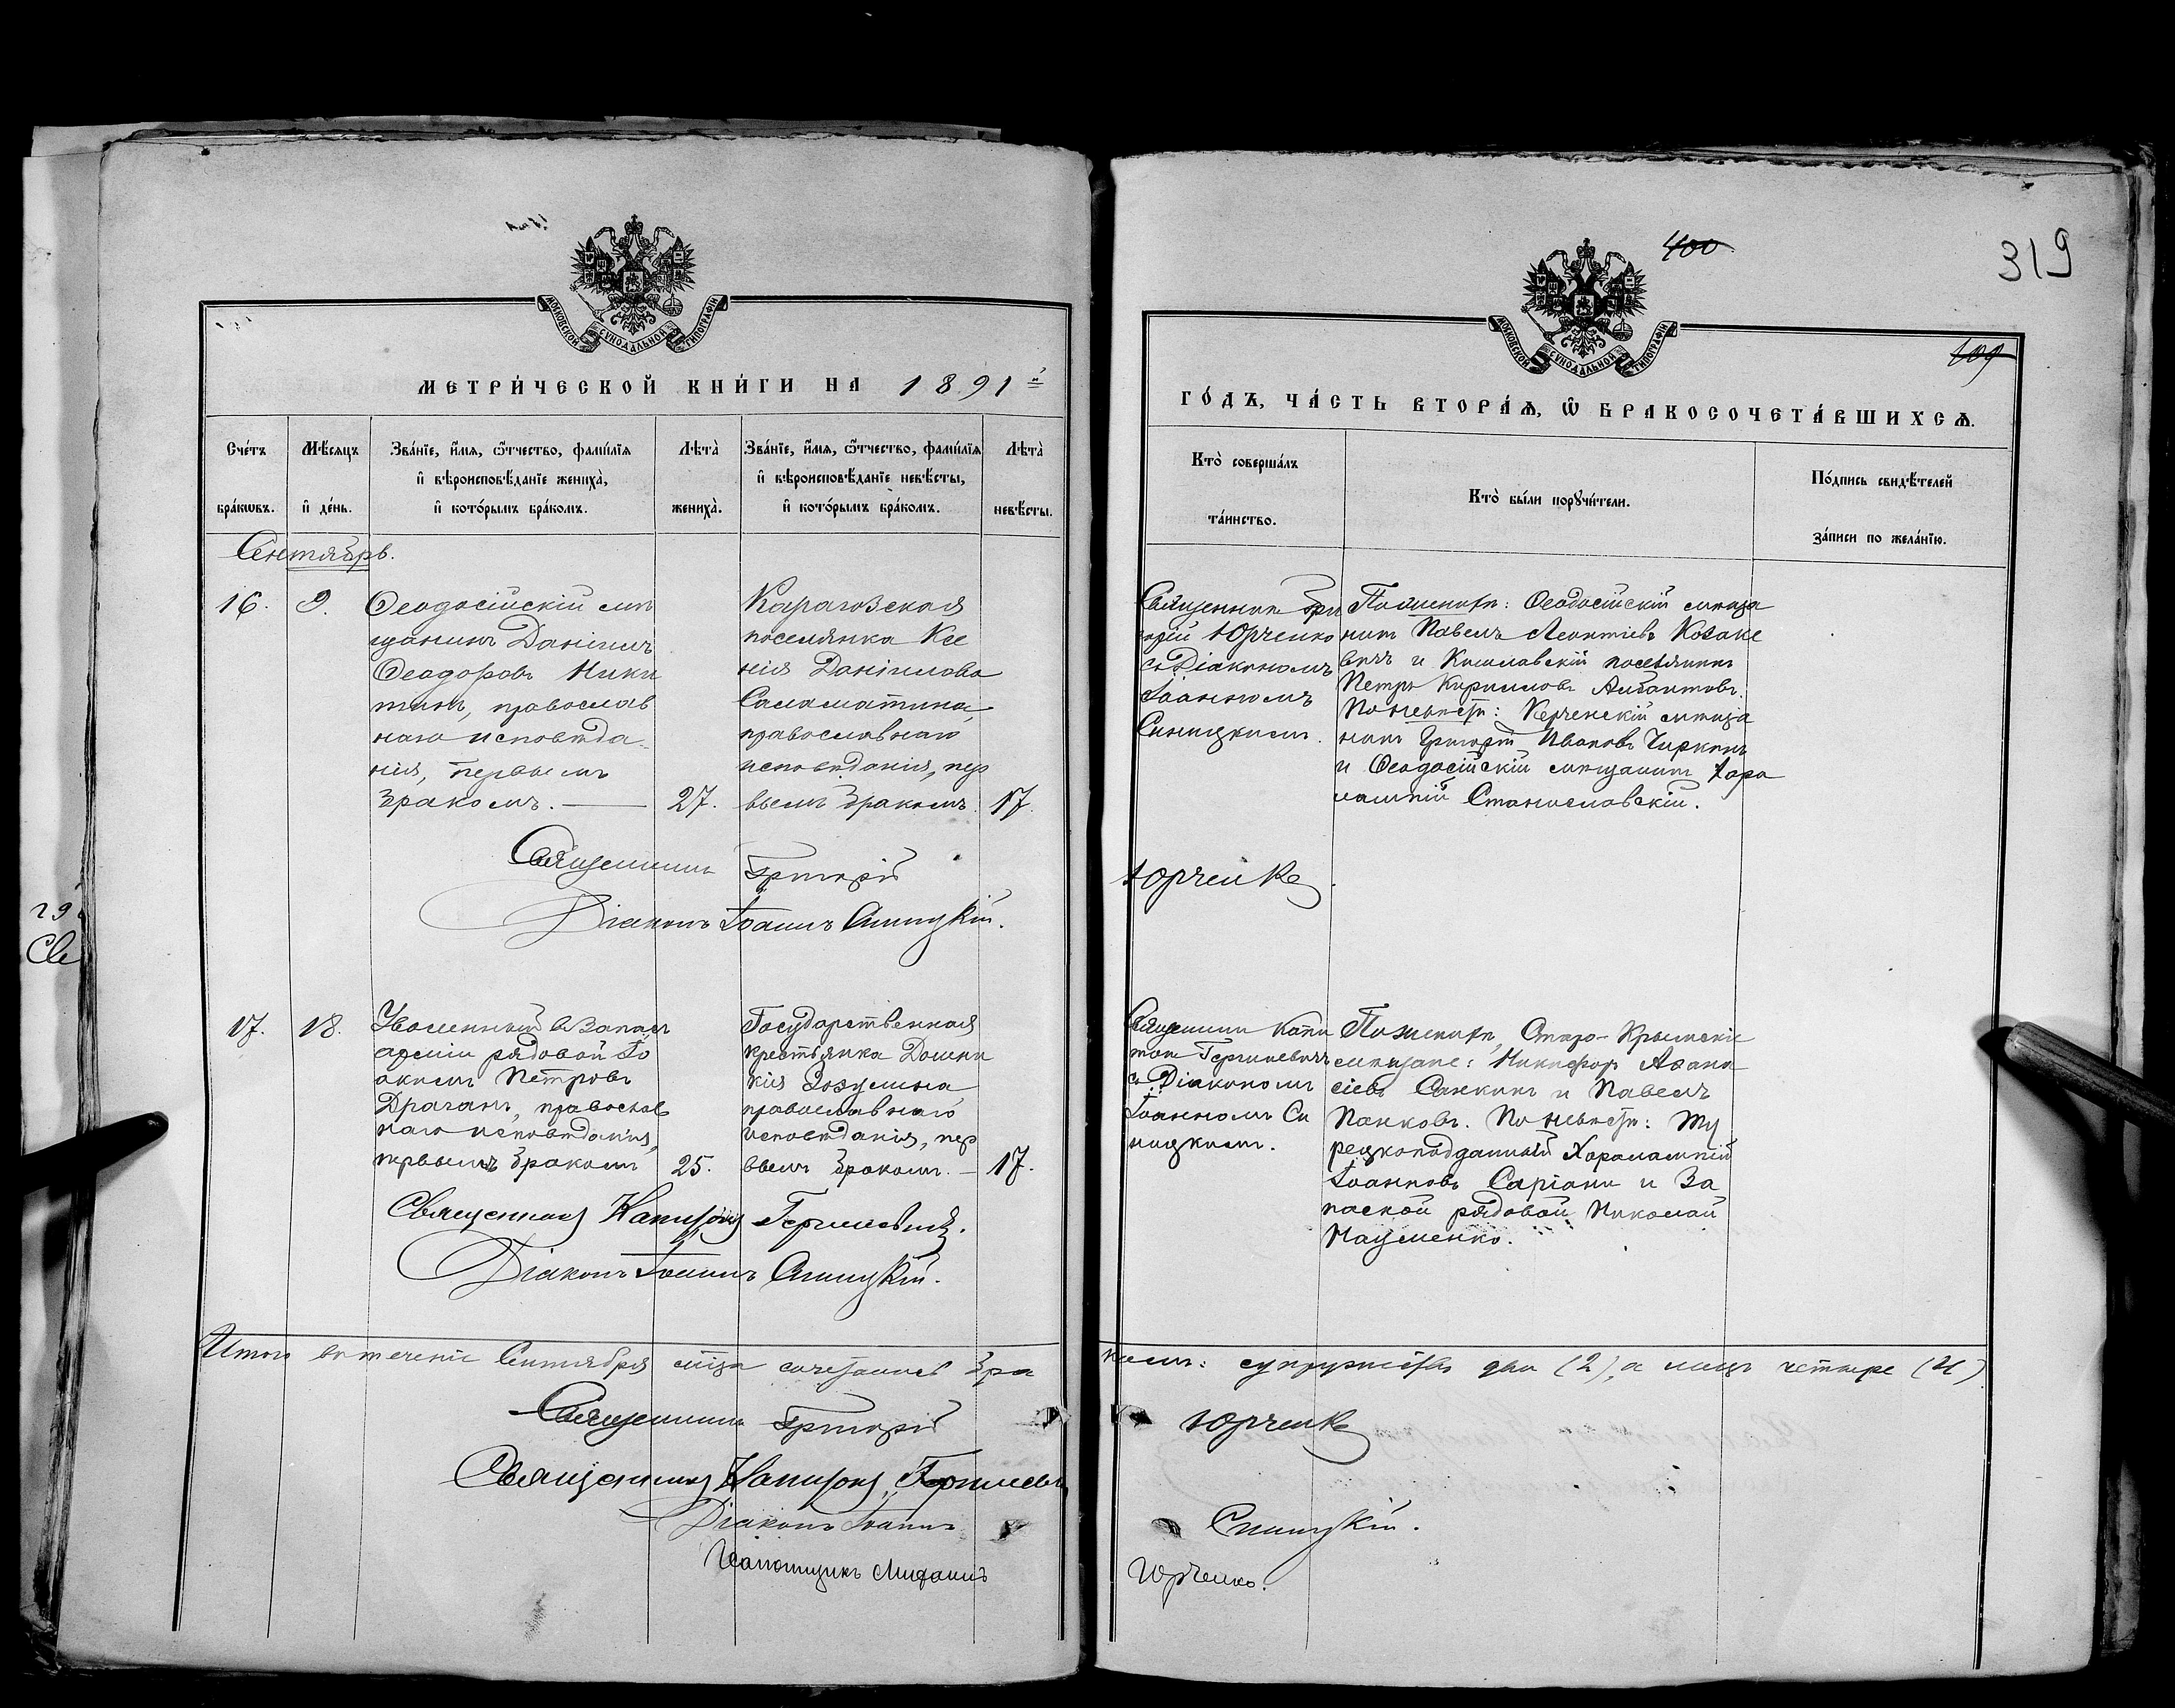 400
319
109
МОСКОВСКОЙ СѴНОДАЛЬНОЙ ТИПОГРАФІИ
МОСКОВСКОЙ СѴНОДАЛЬНОЙ ТИПОГРАФІИ
МЕТРИ́ЧЕСКОЙ КНИ́ГИ НА 1891й
ГО́ДЪ, ЧА́СТЬ ВТОРА́Ѧ, Ѽ БРАКОСОЧЕТА́ВШИХСѦ.
Сче́тъ
бра́кѡвъ.
Мѣ́сяцъ
и҆ де́нь.
Зва́нїе, и҆́мя, ѻ҆́тчество, фами́лїя
и҆ вѣроисповѣ́данїе жениха̀,
и҆ кото́рымъ бра́комъ.
Лѣта̀
жениха̀.
Зва́нїе, и҆́мя, ѻ҆́тчество, фами́лїя
и҆ вѣроисповѣ́данїе невѣ́сты,
и҆ кото́рымъ бра́комъ.
Лѣта̀
невѣ́сты.
Кто̀ соверша́лъ
та́инство.
Кто̀ бы́ли порꙋчи́тели.
По́дпись свидѣ́телей
за́писи по жела́нїю.
Сентябрь.
16.
9.
Ѳеодосійскій мѣ
щанинъ Даніилъ
Ѳеодоровъ Ники
тинъ, православ
наго исповѣда
нія, первымъ
бракомъ.
27.
Карагозская
поселянка Ксе
нія Даніилова
Саламатина,
православнаго
исповѣданія, пер
вымъ бракомъ.
17.
Священникъ Гри
горій Юрченко
съ Діакономъ
Іоанномъ
Синицкимъ.
По женихѣ: Ѳеодосійскій мѣща
нинъ Павелъ Леонтіевъ Козаке
вичъ и Кишлавскій поселянинъ
Петръ Кирилловъ
По невѣстѣ: Керченскій мѣща
нинъ Григорій Ивановъ Чиркинъ
и Ѳеодосійскій мѣщанинъ Хара
лампій Станиславскій.
Священникъ Григорій Юрченко
Діаконъ Іоаннъ Синицкій.
17.
18.
Уволенный въ запасъ
арміи рядовой Іо
акимъ Петровъ
Драганъ, православ
наго исповѣданія,
первымъ бракомъ
25.
Государственная
крестьянка Домни
кія Зозулина
православнаго
исповѣданія, пер
вымъ бракомъ.
17.
Священникъ Капи
тонъ Гериневичъ
съ Діакономъ
Іоанномъ Си
ницкимъ.
По женихѣ, Старо-Крымскіе
мѣщане: Никифоръ Аѳана
сіевъ Санкинъ и Павелъ
Панковъ. По невѣстѣ: Ту
рецкоподданный Харалампій
Іоанновъ Саріани и За
пасной рядовой Николай
Науменко.
Священникъ Капитонъ Гериневичъ.
Діаконъ Іоаннъ Синицкій.
Итого въ теченіе Сентября мѣсца сочеталось бра
комъ: супружествъ два (2), а лицъ четыре (4)
Священникъ Григорій Юрченко
Священникъ Капитонъ Гериневичъ
Діаконъ Іоаннъ Синицкій.
Псаломщикъ Юрченко.
29
Св